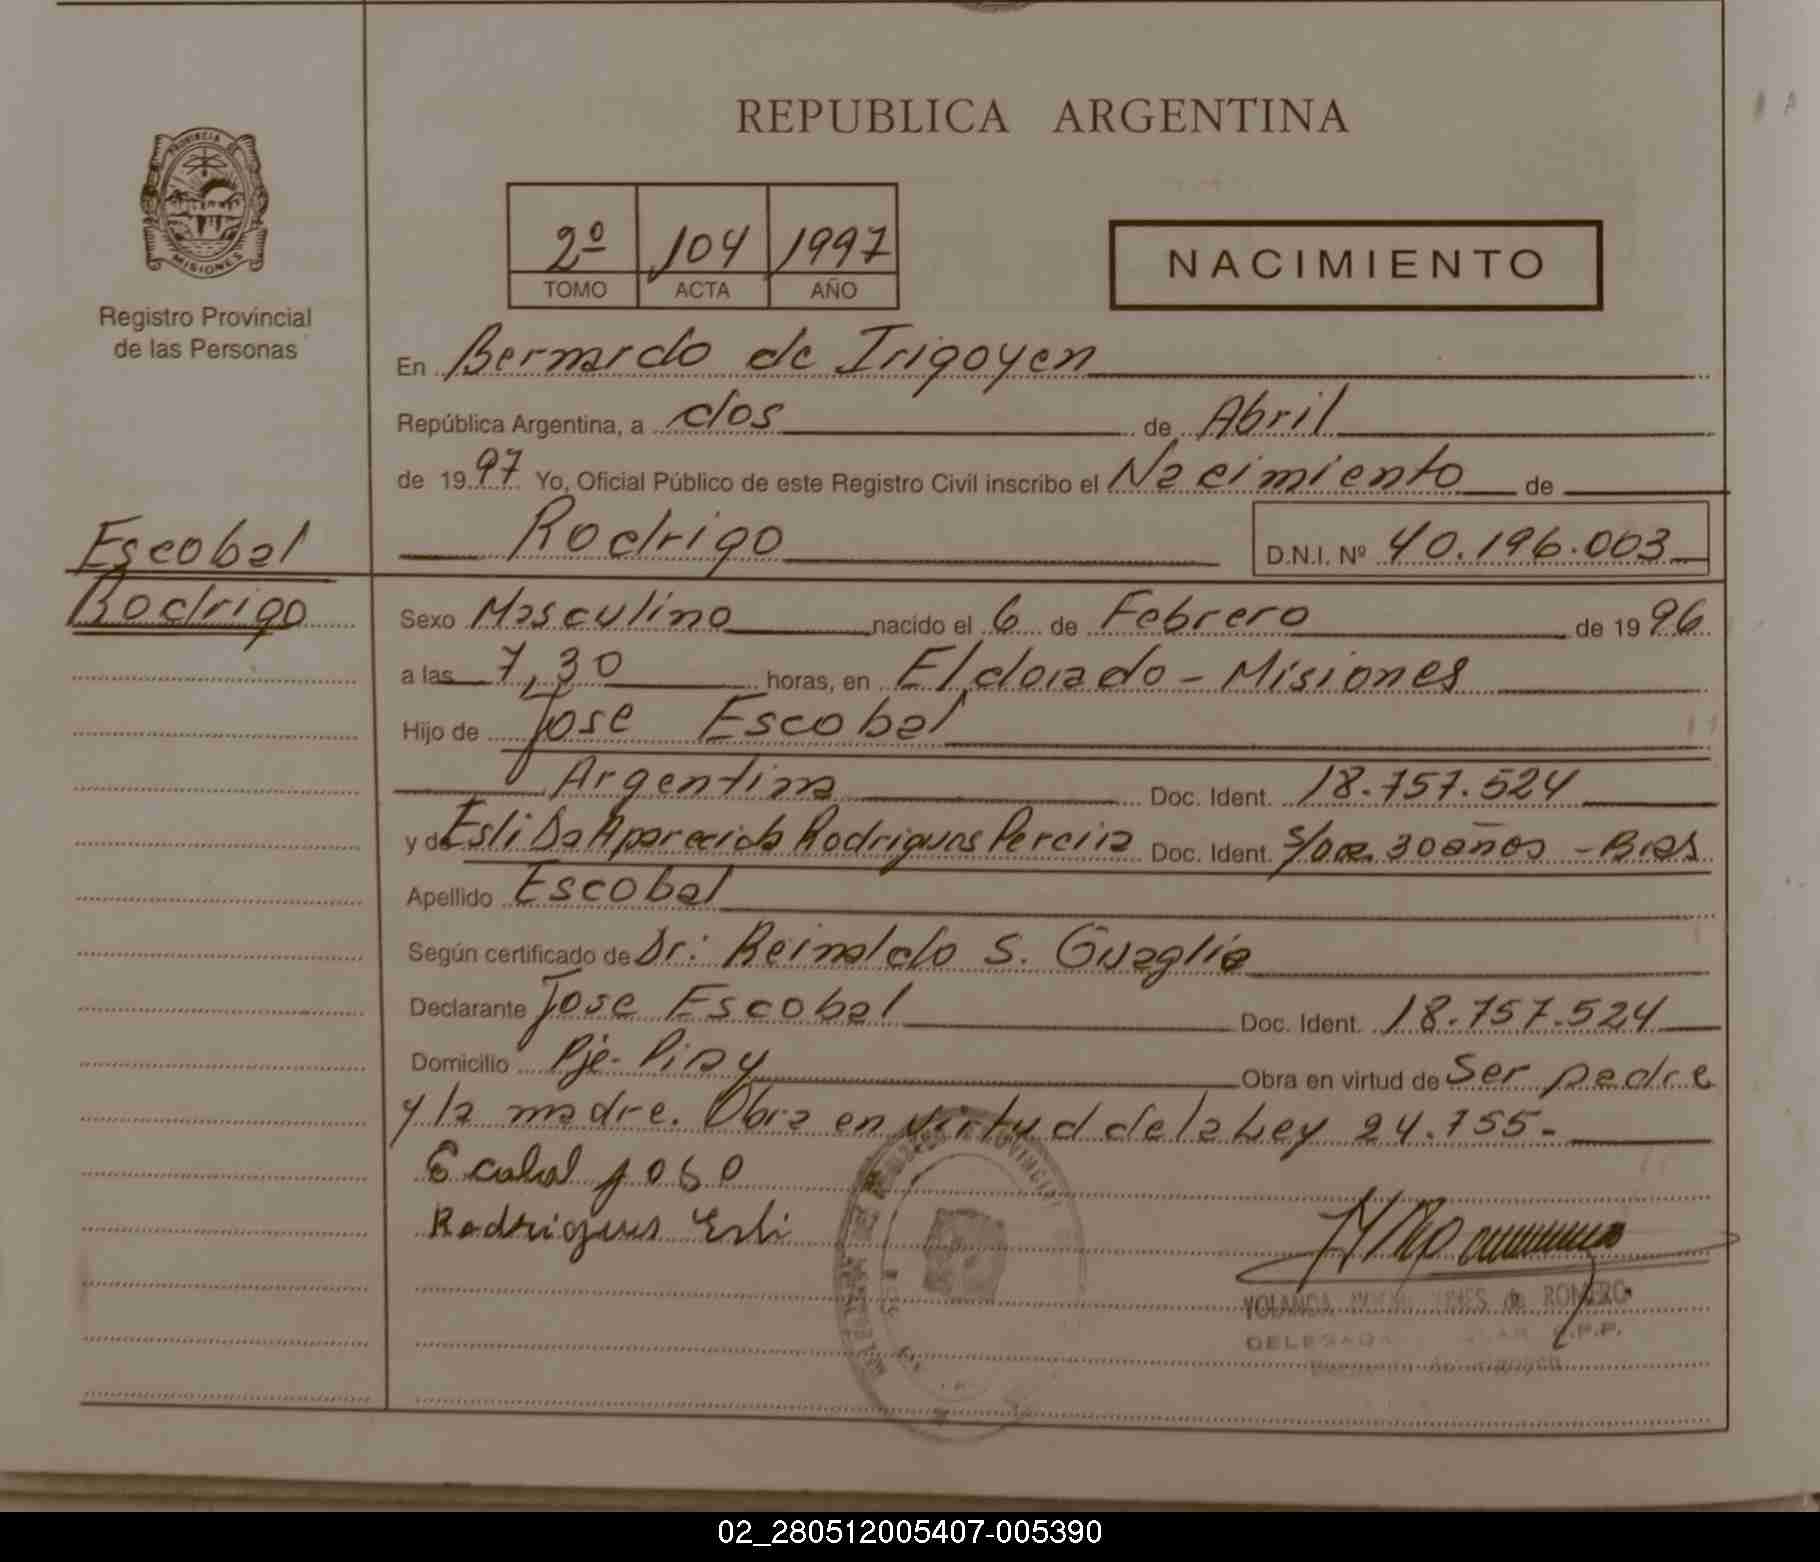 REPUBLICA ARGENTINA
PROVINCIA DE
MISIONES
Registro Provincial
de las Personas
2º 104 1997
TOMO ACTA AÑO
NACIMIENTO
En Bernardo de Irigoyen
República Argentina, a dos de Abril
de 1997 Yo, Oficial Público de este Registro Civil inscribo el Nacimiento de
Rodrigo D.N.I. Nº 40.196.003
Escobal
Rodrigo
Sexo Masculino nacido el 6 de Febrero de 1996
a las 7,30 horas, en Eldorado - Misiones
Hijo de Jose Escobal
Argentina Doc. Ident. 18.757.524
y de Esli Da Aparecida Rodrigues Pereira Doc. Ident. s/Doc. 30 años - Bras
Apellido Escobal
Según certificado de Dr: Reinaldo S. Guaglia
Declarante Jose Escobal Doc. Ident. 18.757.524
Domicilio Pje. Piray Obra en virtud de Ser padre
y la madre. Obra en virtud de la Ley 24.755-
Rodrigues Esli
YOLANDA de ROMERO
DELEGADA
02_280512005407-005390